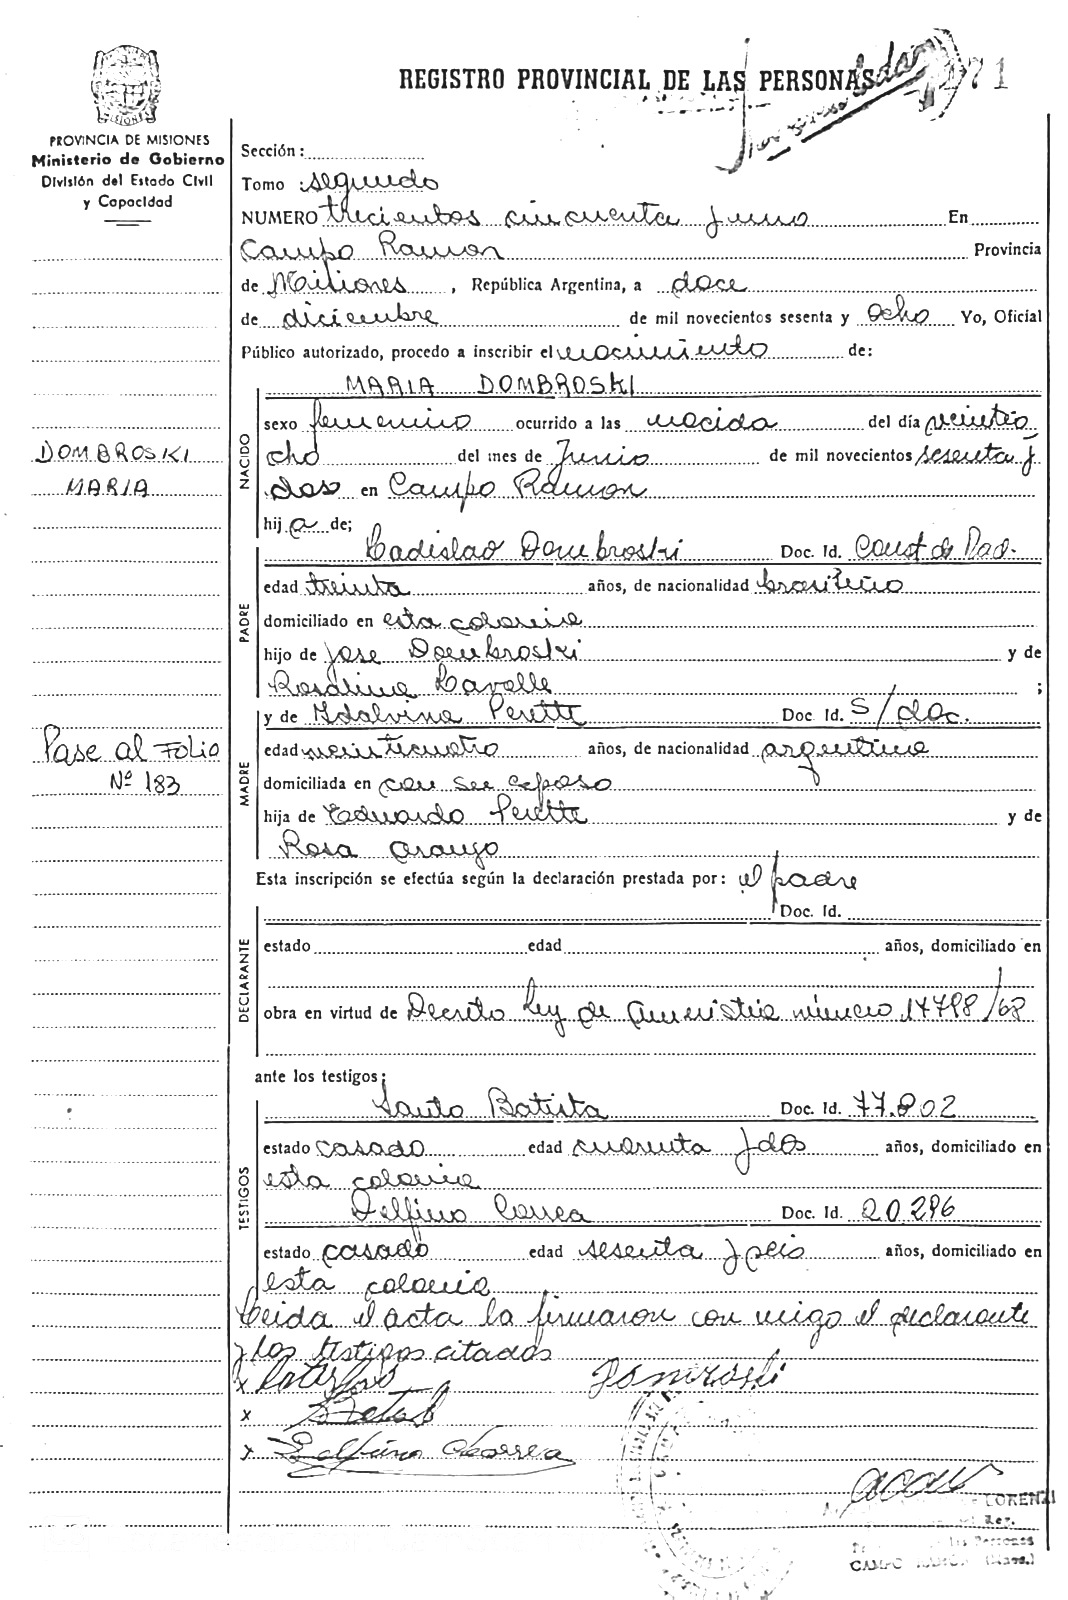 REGISTRO PROVINCIAL DE LAS PERSONAS
171
PROVINCIA DE MISIONES
Ministerio de Gobierno
División del Estado Civil
y Capacidad
Sección:
Tomo: segundo
NUMERO trecientos cincuenta y uno En
Campo Ramon Provincia
de Misiones, República Argentina, a doce
de diciembre de mil novecientos sesenta y ocho Yo, Oficial
Público autorizado, procedo a inscribir el nacimiento de:
MARIA DOMBROSKI
NACIDO
sexo femenino ocurrido a las nacida del día veintio
cho del mes de Junio de mil novecientos sesenta y
dos en Campo Ramon
hij a de;
DOMBROSKI
MARIA
PADRE
Ladislao Dombroski Doc. Id. Const de Nad.
edad treinta años, de nacionalidad brasileño
domiciliado en esta colonia
hijo de Jose Dombroski y de
Rosalina Lavalle ;
y de Idalvina Perette Doc. Id. S/doc.
Pase al Folio
Nº 183
MADRE
edad veinticuatro años, de nacionalidad argentina
domiciliada en con su esposo
hija de Eduardo Perette y de
Rosa Araujo
Esta inscripción se efectúa según la declaración prestada por: el padre
Doc. Id.
DECLARANTE
estado edad años, domiciliado en
obra en virtud de Decreto Ley de Amnistia número 17798/68
ante los testigos:
TESTIGOS
Santo Batista Doc. Id. 77.802
estado casado edad cuarenta y dos años, domiciliado en
esta colonia
Delfino Correa Doc. Id. 20.296
estado casado edad sesenta y seis años, domiciliado en
esta colonia
Leida el acta la firmaron con migo el declarante
y los testigos citados
x Latislao Domroski
x
x Delfino Correa
LORENZI
Reg.
las Personas
CAMPO RAMON (Mnes.)